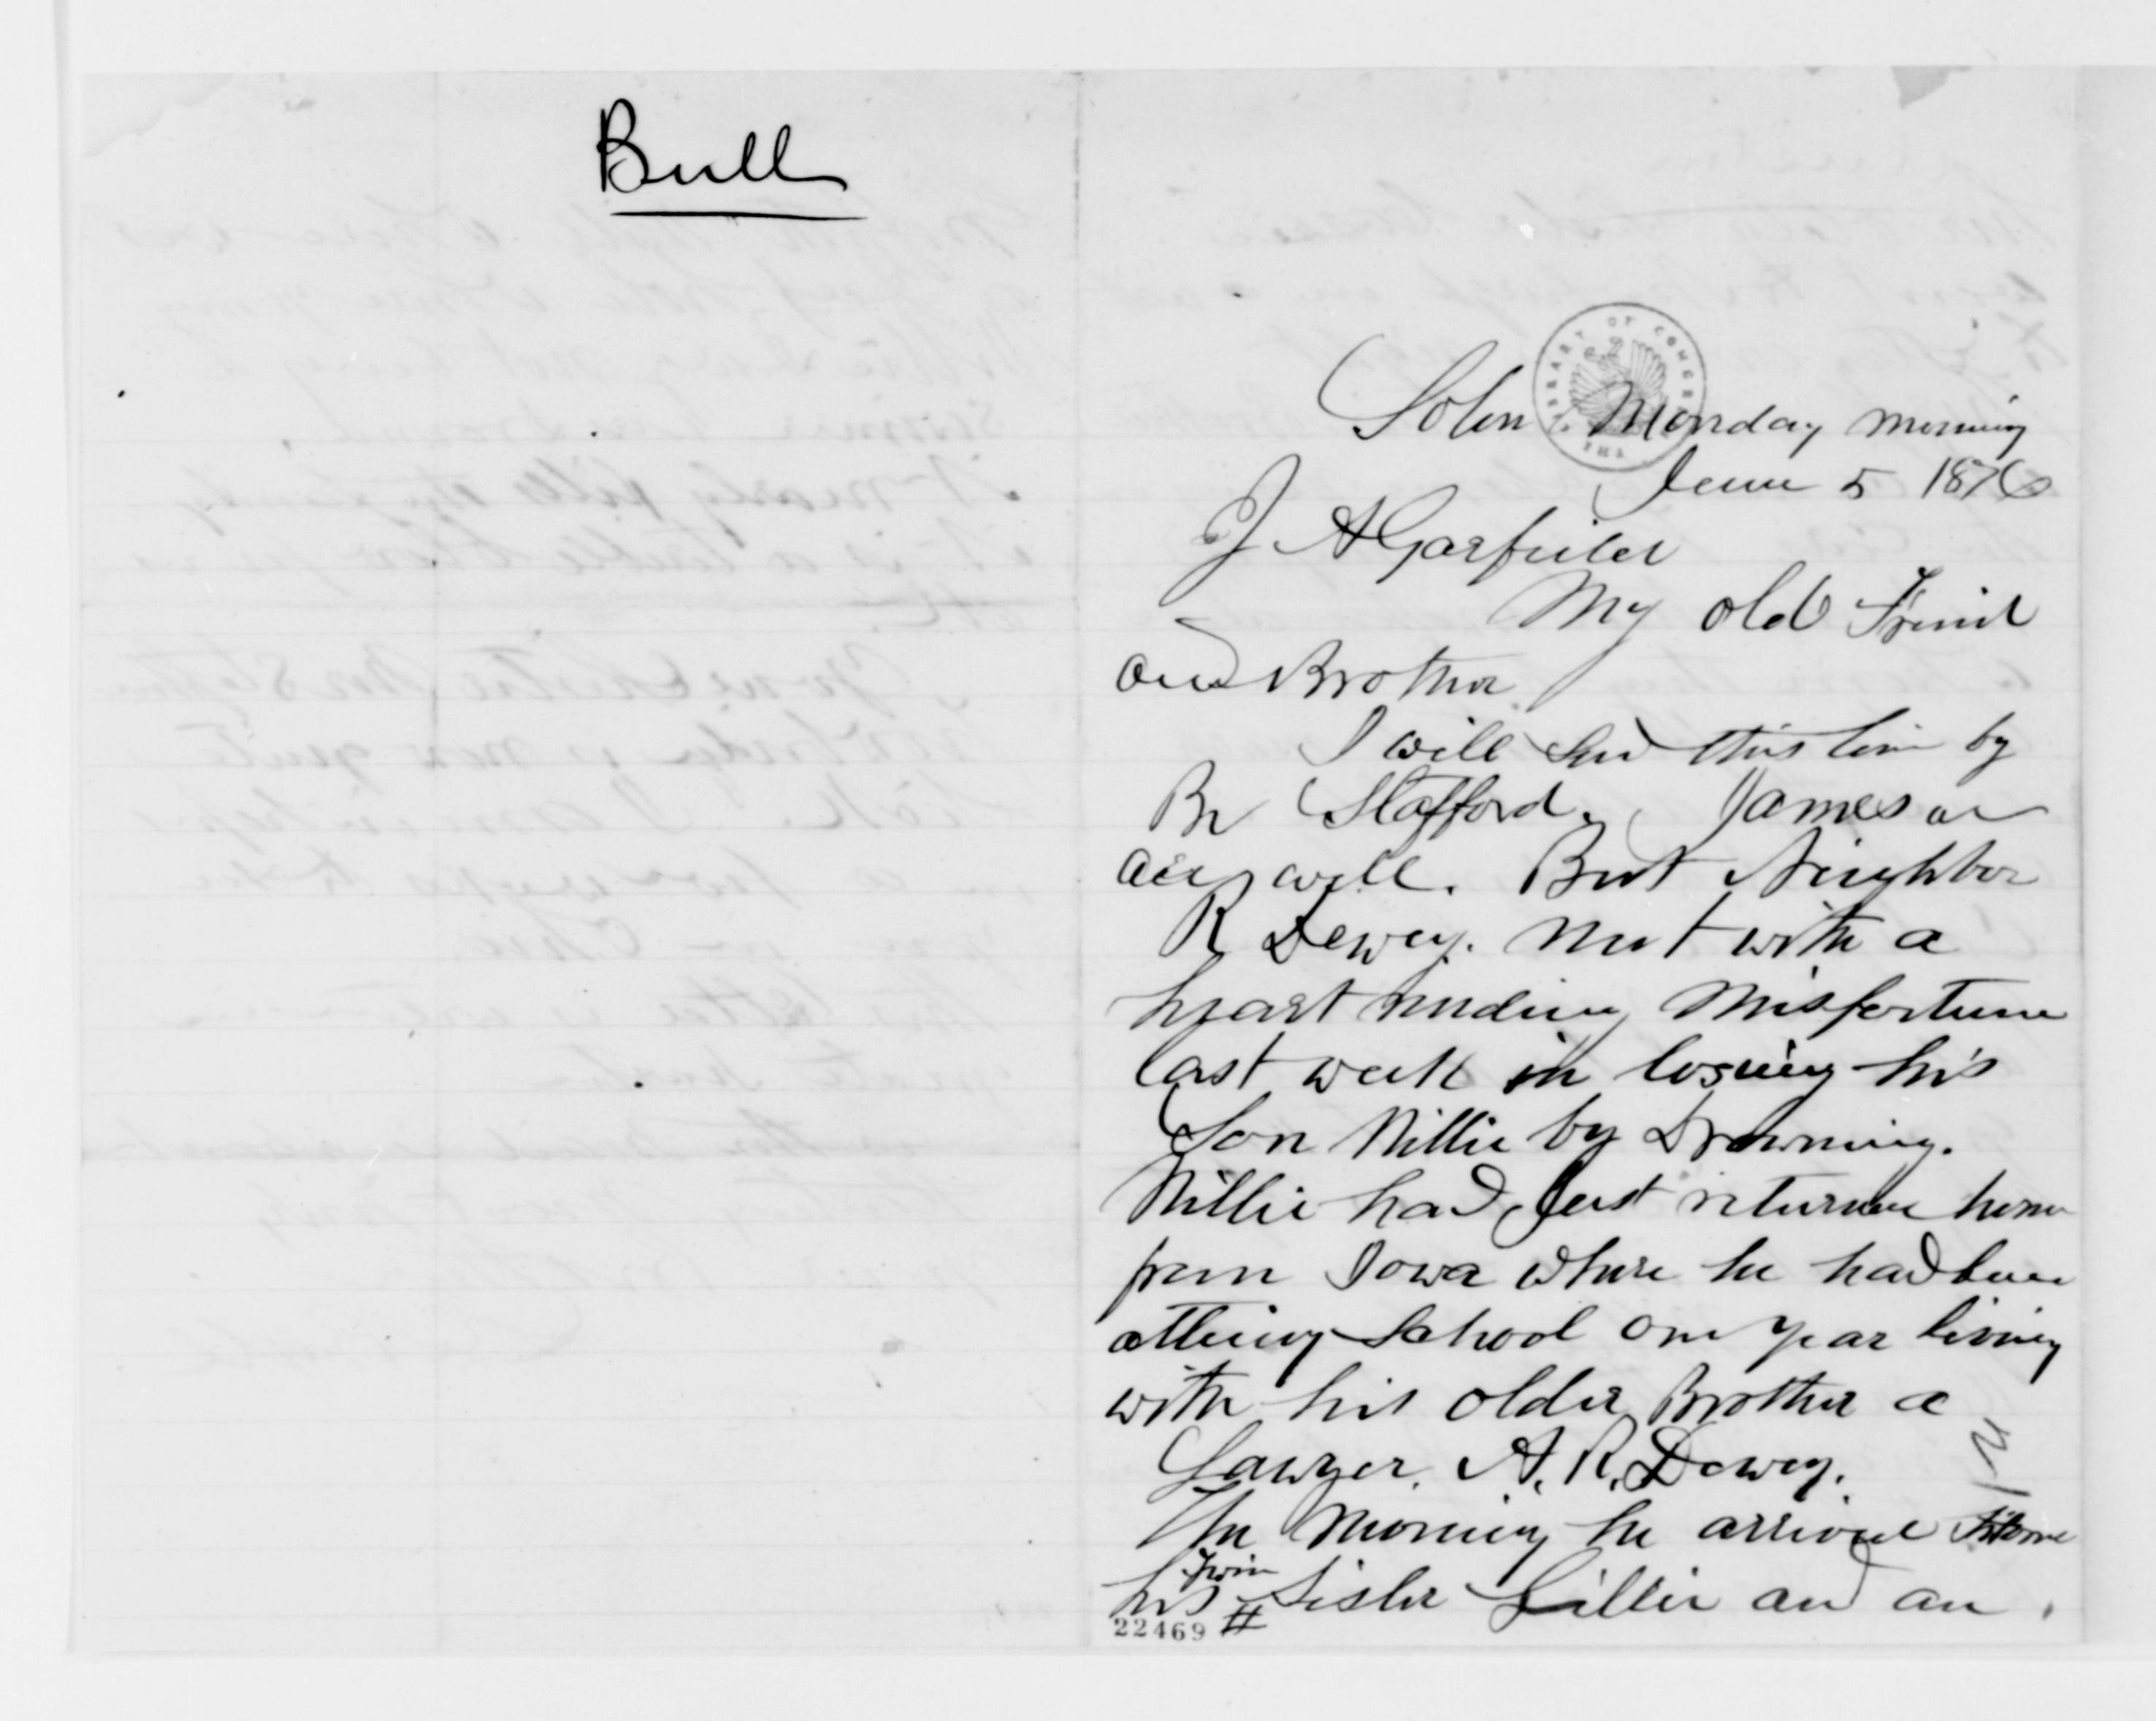 Bull
THE LIBRARY OF CONGRESS
Solon Monday morning
June 5 1876
J A Garfield
My old Friend
and Brother
I will send this line by
Br Stafford. James are
all well. But Neighbor
R Dewey. Met with a
heart rending Misfortune
last week in losing his
Son Willie by Drowning.
Willie had Just returned home
from Iowa where he had been
attending School one year living
with his older Brother a
Lawyer. A. R. Dewey.
The Morning he arrived Home
his Twin Sister Lillie and an
22469 #